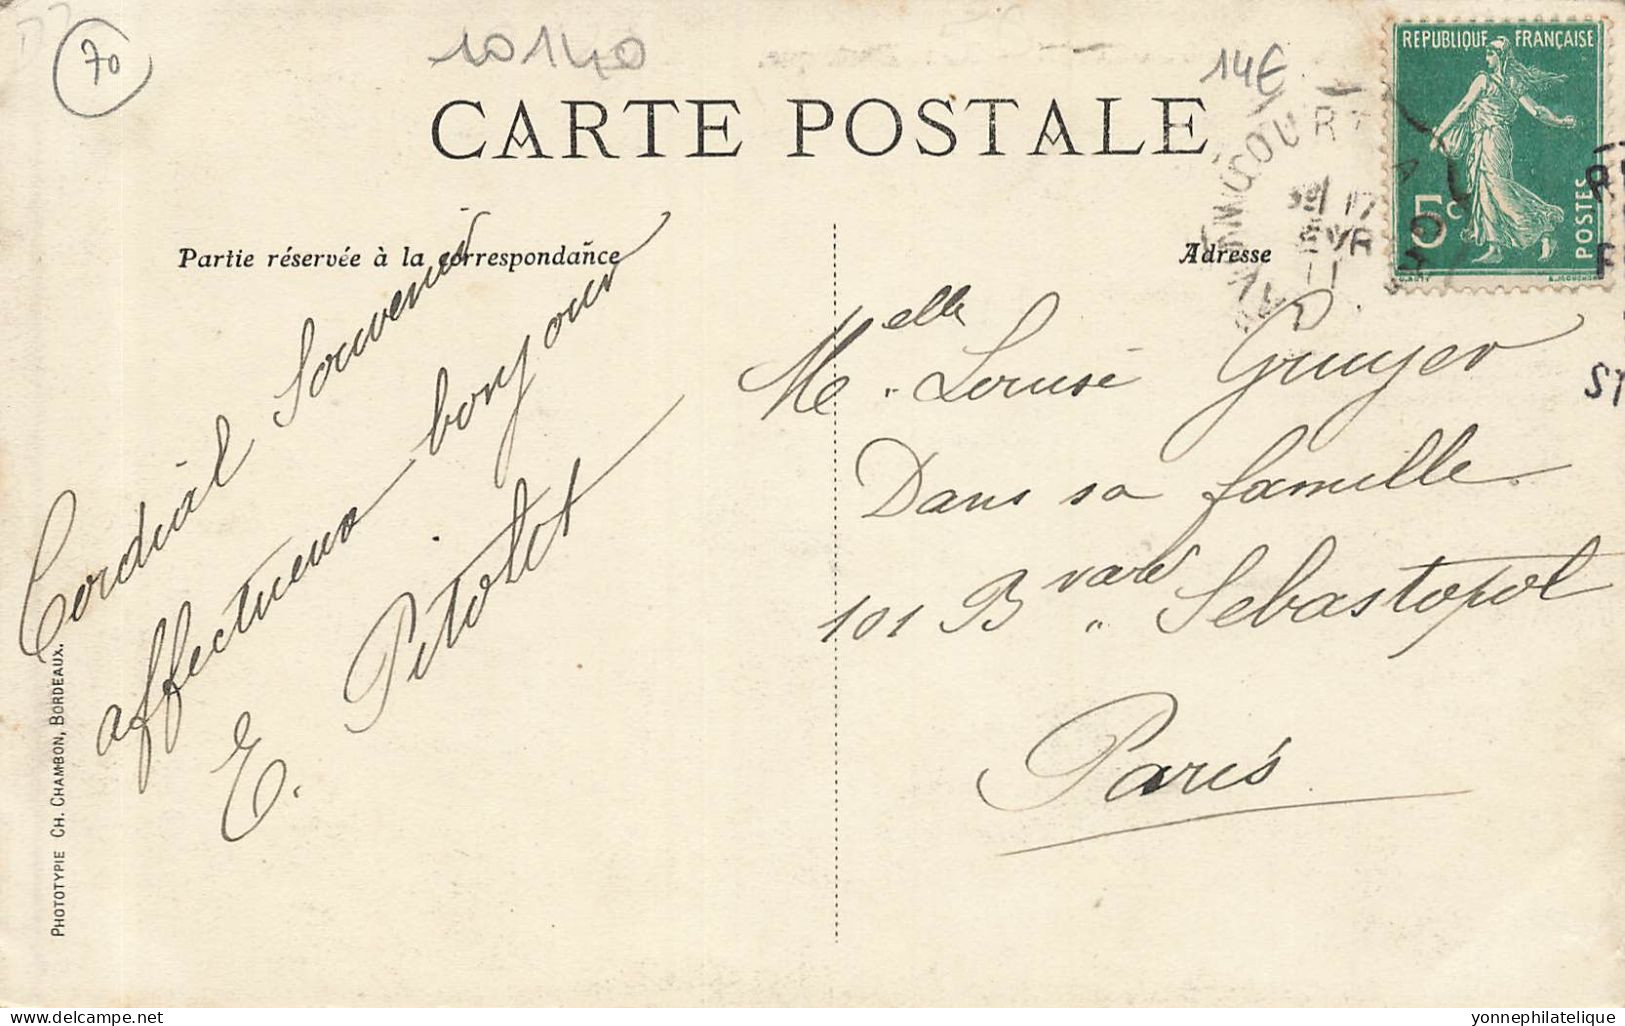 70
10140
14€
CARTE POSTALE
REPUBLIQUE FRANÇAISE
5c
POSTES
Partie réservée à la correspondance
Adresse
Cordial Souvenir
affectueux bonjour
E. Pitolet
Melle Louise Gruyer
Dans sa famille
101 Bvard Sebastopol
Paris
PHOTOTYPIE CH. CHAMBON, BORDEAUX.
delcampe.net
yonnephilatelique